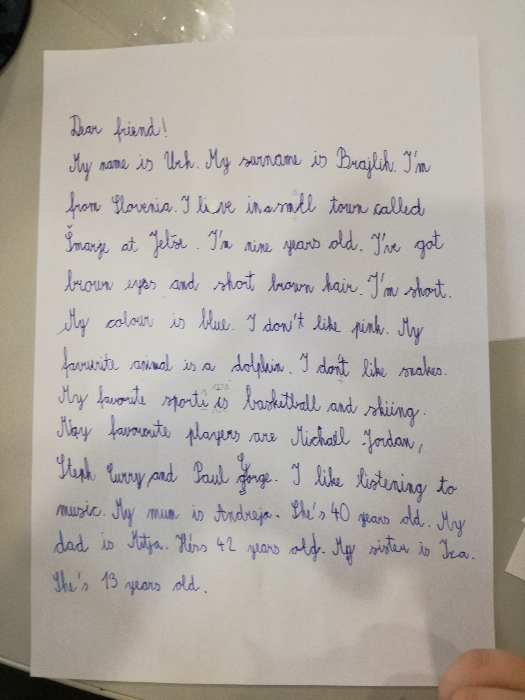 Dear friend!
My name is Urh. My surname is Brajlih. I'm
from Slovenia. I live in a small town called
Šmarje at Jelše. I'm nine years old. I've got
brown eyes and short brown hair. I'm short.
My colour is blue. I don't like pink. My
favourite animal is a dolphin. I don't like snakes.
My favorite sport is basketball and skiing.
May favourite players are Michaël Jordan,
Steph Curry and Paul George. I like listening to
music. My mum is Andreja. She's 40 years old. My
dad is Mitja. He's 42 years old. My sister is Iza.
She's 13 years old.